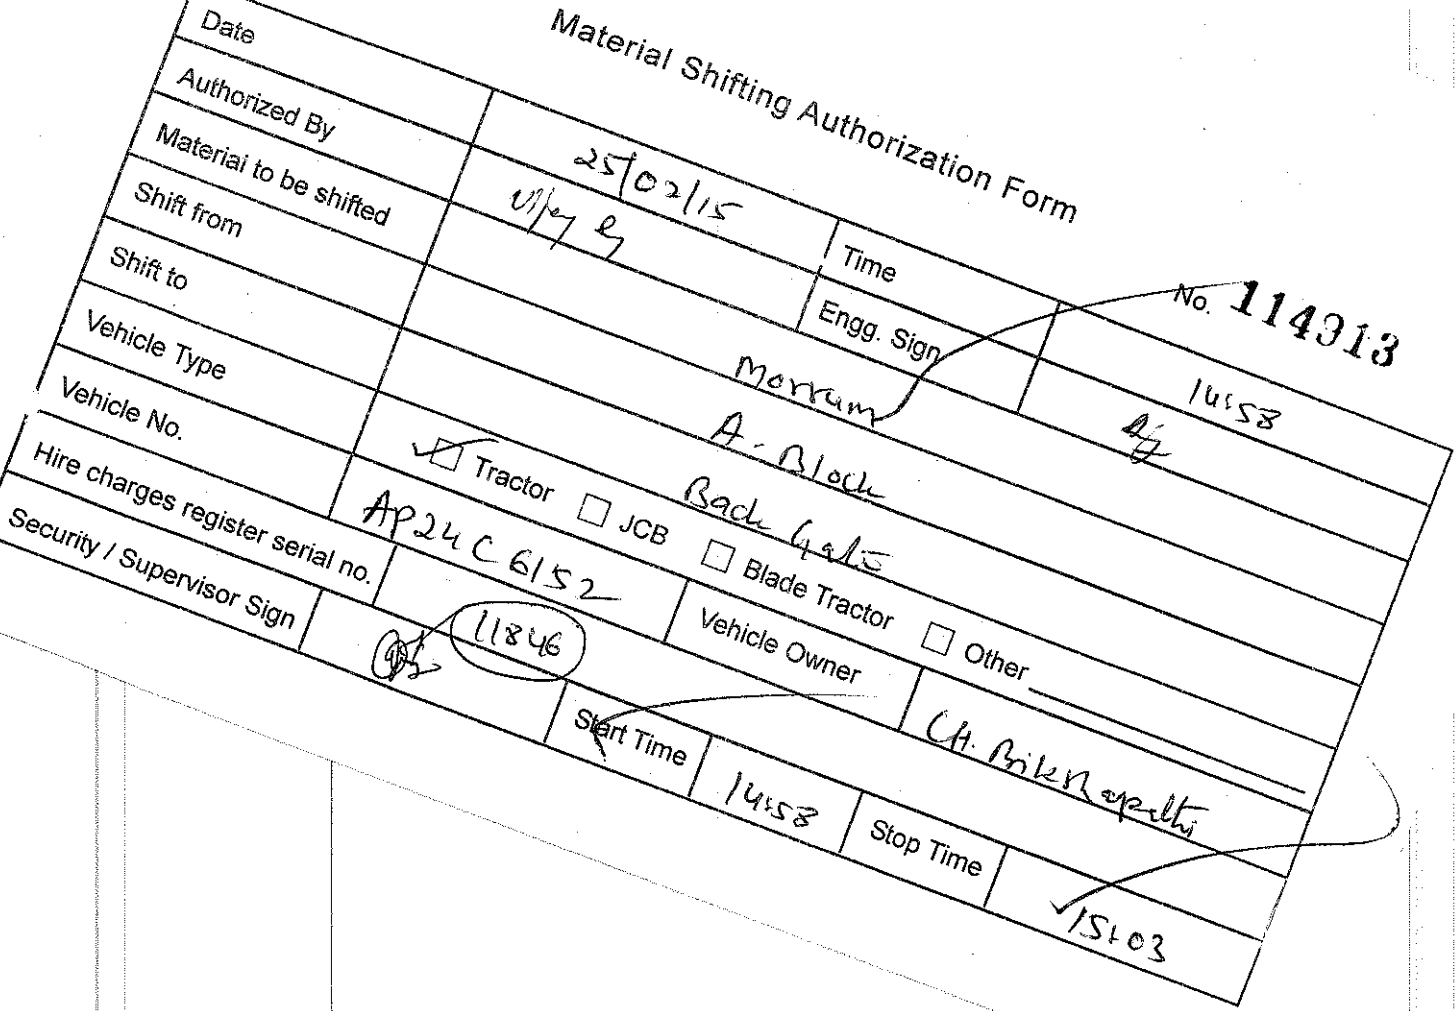 Material Shifting Authorization Form
No. 114913
Date 25/02/15 Time 14:58
Authorized By Vijay Engg. Sign
Material to be shifted Morrum
Shift from A-Block
Shift to Back Gate
Vehicle Type Tractor JCB Blade Tractor Other
Vehicle No. AP24C6152 Vehicle Owner CH. Bikshapathi
Hire charges register serial no. 11846
Security / Supervisor Sign Start Time 14:58 Stop Time 15:03